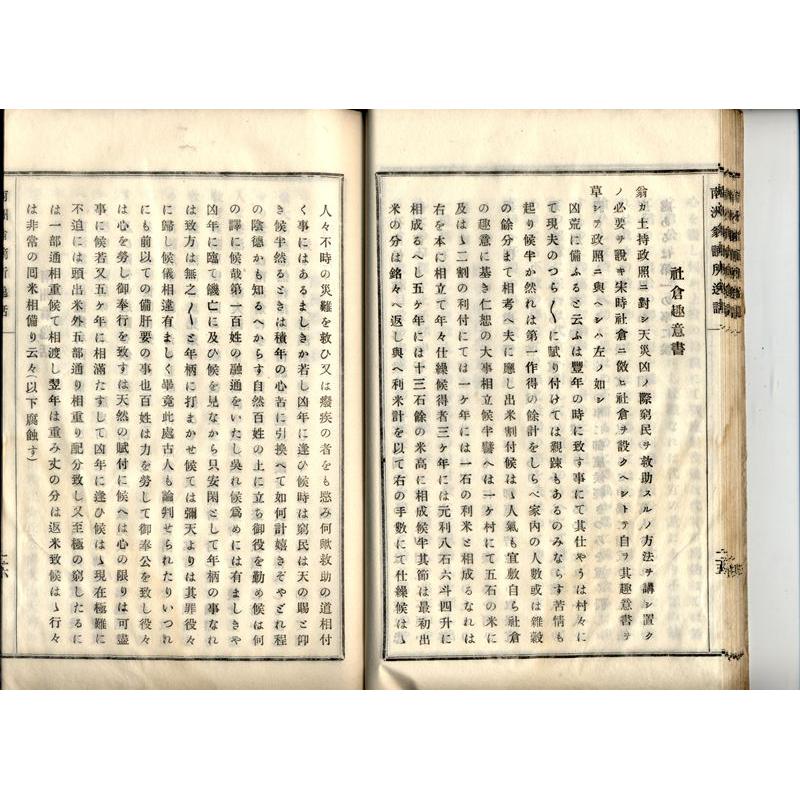 社倉趣意書
翁カ土持政照ニ對シ天災凶ノ際窮民ヲ救助スルノ方法ヲ講シ置ク
ノ必要ヲ說キ宋時社倉ニ倣ヒ社倉ヲ設クヘシトテ自ラ其趣意書ヲ
草シテ政照ニ與ヘシハ左ノ如シ
凶荒に備ふると云ふは豐年の時に致す事にて其仕やうは村々に
て現夫のつら〱に賦り付けては親踈もあるのみならす苦情も
起り候半か然れは第一作得の餘計をしらべ家内の人數或は雜穀
の餘分まて相考へ夫に應し出米割付候はゝ人氣も宜敷自ら社倉
の趣意に基き仁恕の大事相立候半譬へは一ケ村にて五石の米に
及はゝ二割の利付にては一ケ年には一石の利米と相成るなれは
右を本に相立て年々仕繰候得者三ケ年には元利八石六斗四升に
相成るへし五ケ年には十三石餘の米高に相成候半其節は最初出
米の分は銘々へ返し與へ利米計を以て右の手數にて仕繰候はゝ
人々不時の災難を救ひ又は癈疾の者をも惑み何歟救助の道相付
く事にはあるましきか若し凶年に逢ひ候時は窮民は天の賜と仰
き候半然るときは積年の心苦に引換へて如何計嬉きぞやどれ程
の陰德かも知るへからす自然百姓の上に立ち御役を勤め候は何
の譯に候哉第一百姓の融通をいたし吳れ候爲めには有ましきや
凶年に臨て饑亡に及ひ候を見なから只安閑として年柄の事なれ
は致方は無之〱と年柄に打まかせ候ては彌天よりは其罪役々
に歸し候儀相違有ましく畢竟此處古人も論判せられたりいつれ
にも前以ての備肝要の事也百姓は力を勞して御奉公を致し役々
は心を勞し御奉行を致すは天然の賦付に候へは心の限りは可盡
事に候若又五ケ年に相滿たすして凶年に逢ひ候はゝ現在極難に
不迫には頭出米外五部通り相重り配分致し又至極の窮したるに
は一部通相重候て相渡し翌年は重み丈の分は返米致候はゝ行々
は非常の囘米相備り云々(以下腐蝕す)